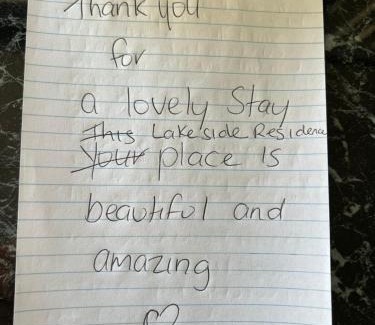 Thank you
for
a lovely Stay
This Lakeside Residence
Your place is
beautiful and
amazing